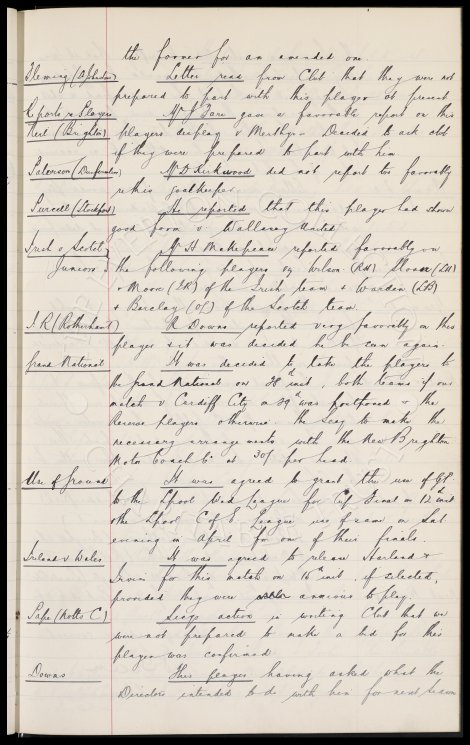 the former for an amended one.
Fleming (Dundee) Letter read from Club that they were not
prepared to part with this player at present
Reports re Players Mr J. Fare gave a favorable report on this
Neil (Brighton) players display v Merthyr. Decided to ask club
if they were prepared to part with him
Paterson (Dunfermline) Mr D. Kirkwood did not report too favorably
re this goalkeeper.
Purcell (Stockport) He reported that this player had shown
good form v Wallasey United
Irish v Scotch Mr H Makepeace reported favorably on
Juniors the following players viz Wilson (RH) Sloan (LH)
& Moore (IR) of the Irish team & Warden (LB)
& Barclay (OL) of the Scotch team.
I.R (Rotherham) R Downs reported very favorably on this
player & it was decided he be seen again.
Grand National It was decided to take the players to
the Grand National on 28th inst, both teams if our
match v Cardiff City on 29th was postponed & the
Reserve players otherwise. The Secy to make the
necessary arrangements with the New Brighton
Motor Coach Co at 30/- per head.
Use of Ground It was agreed to grant the use of GP
to the Lpool Wed League for Cup Final on 12th inst
& the Lpool C of E. League use of same on Sat
evening in April for one of their finals.
Ireland v Wales It was agreed to release Harland &
Irvine for this match on 15th inst, if selected,
provided they were anxious to play.
Pape (Notts C) Secys action in writing Club that we
were not prepared to make a bid for this
player was confirmed
Downs This player having asked what the
Directors intended to do with him for next season